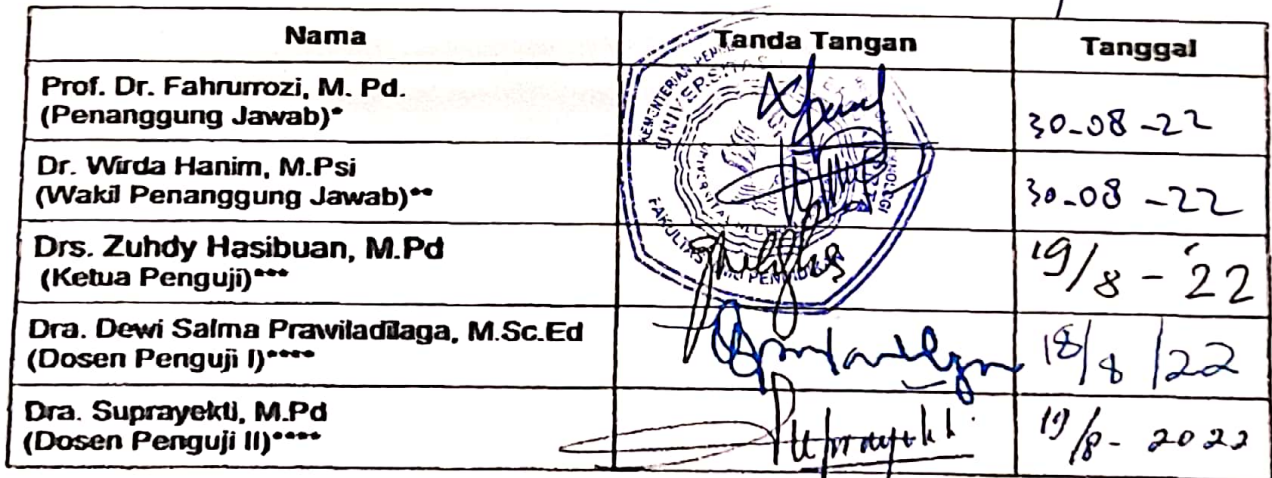 Nama Tanda Tangan Tanggal
Prof. Dr. Fahrurrozi, M. Pd.
(Penanggung Jawab)* 30-08-22
Dr. Wirda Hanim, M.Psi
(Wakil Penanggung Jawab)** 30-08-22
Drs. Zuhdy Hasibuan, M.Pd
(Ketua Penguji)*** 19/8-'22
Dra. Dewi Salma Prawiladilaga, M.Sc.Ed
(Dosen Penguji I)**** 18/8/22
Dra. Suprayekti, M.Pd
(Dosen Penguji II)**** Suprayekti 19/8-2022
KEMENTERIAN
UNIVERSITAS
FAKULTAS ILMU PENDIDIKAN